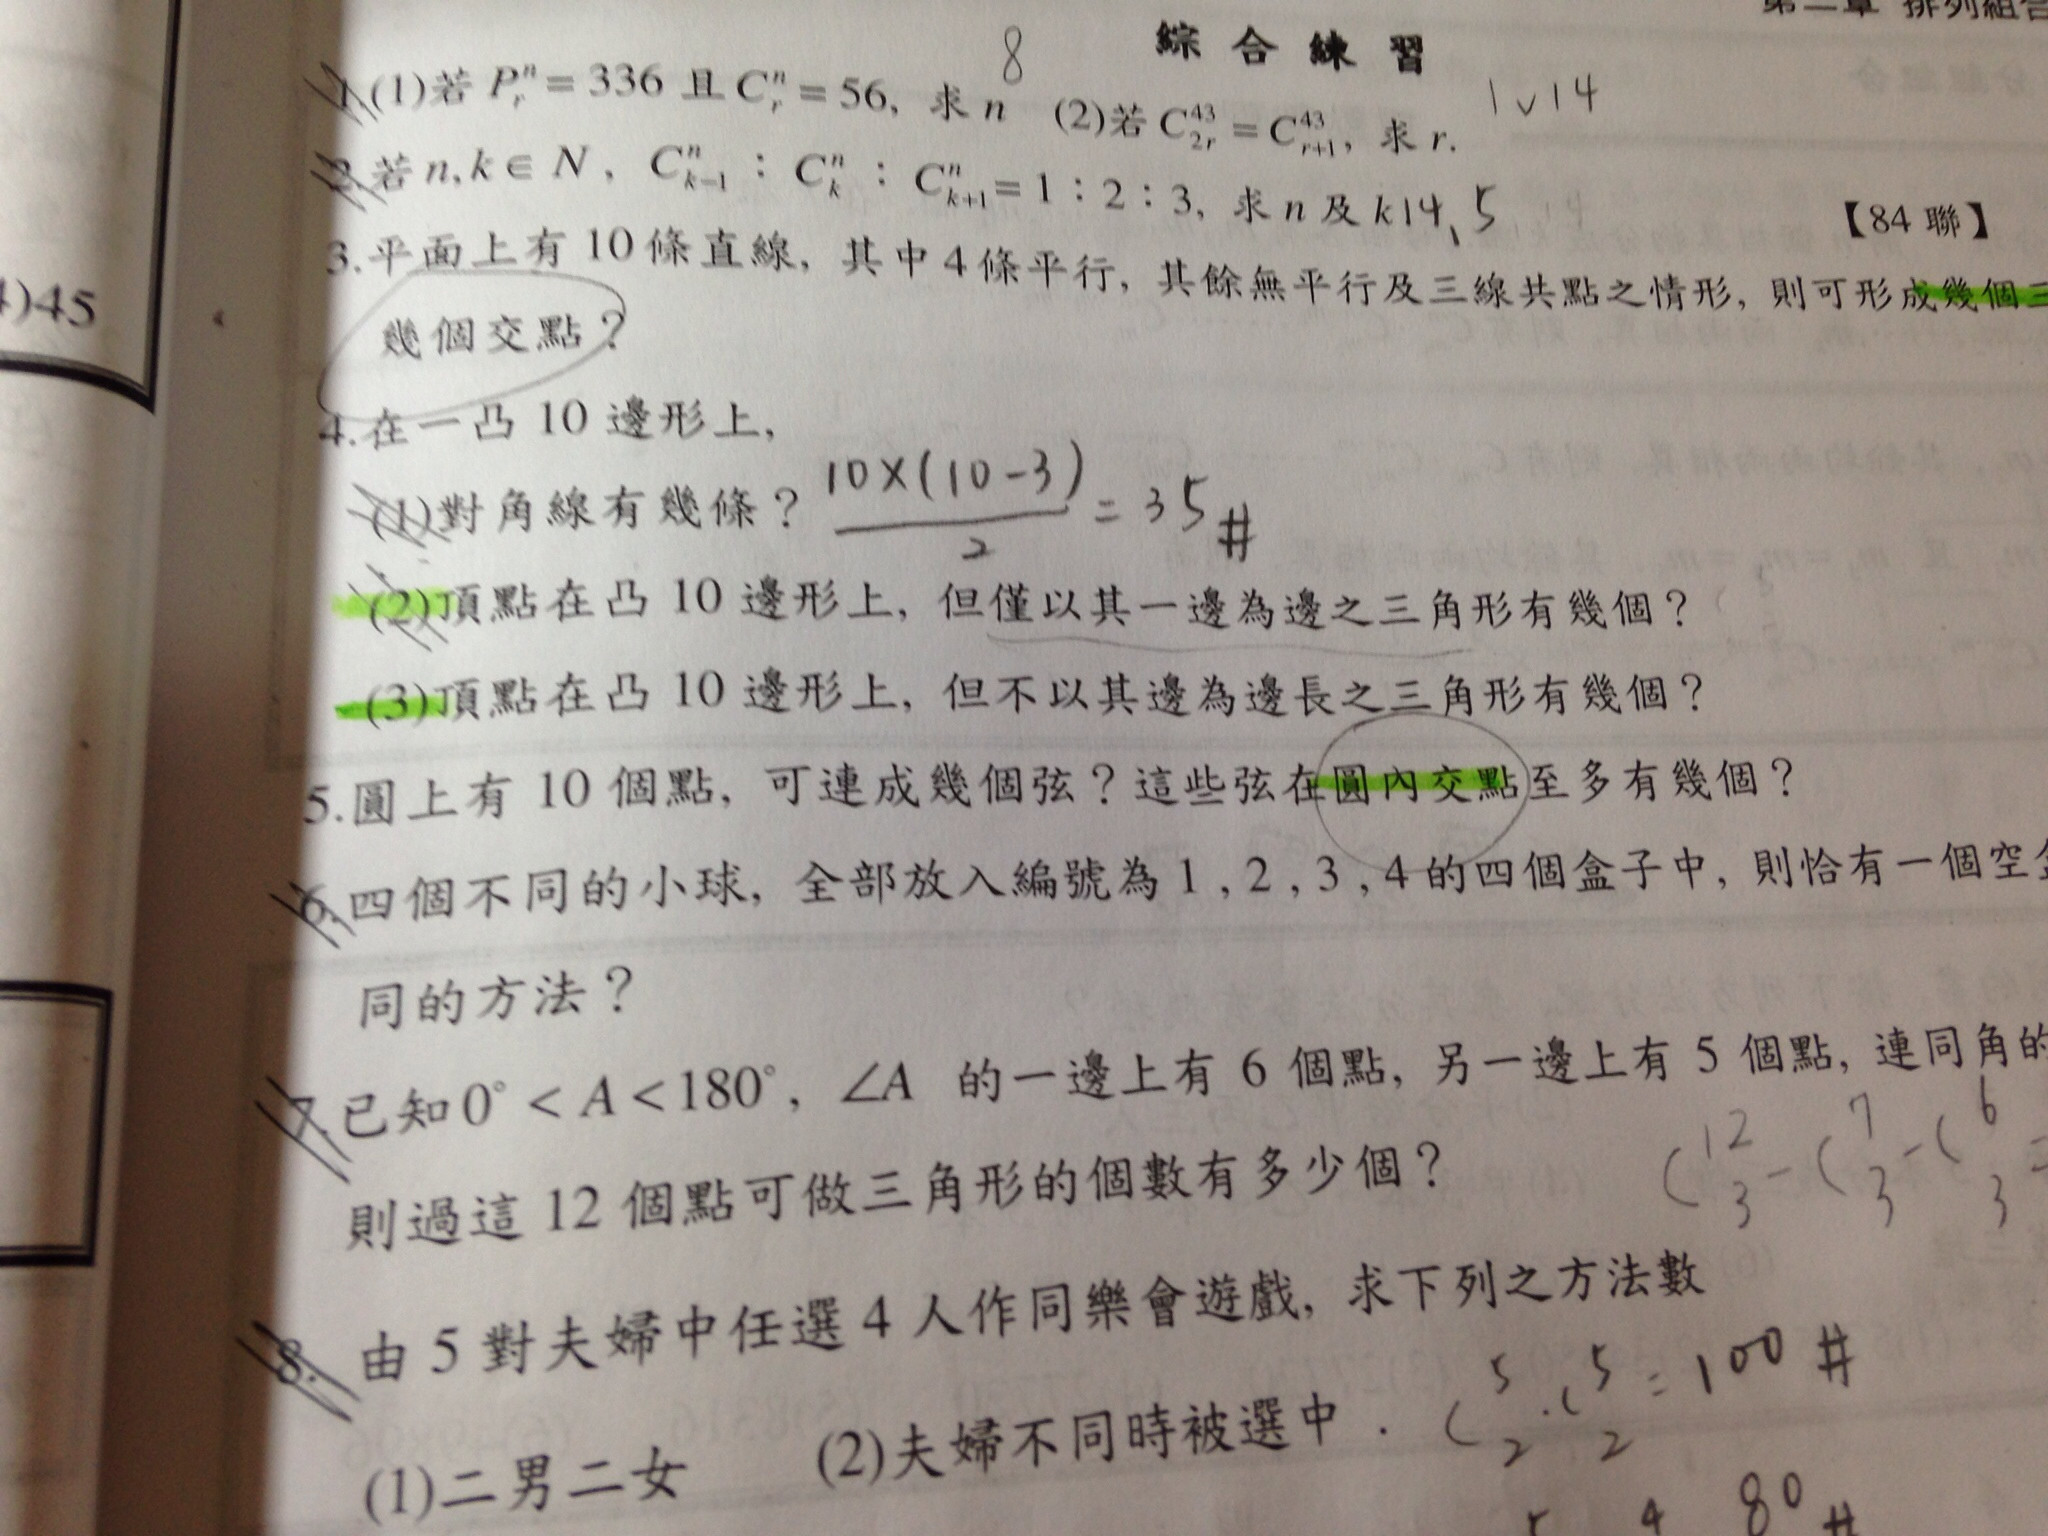 第二章 排列組合
綜合練習
8
1.(1)若 P^n_r = 336 且 C^n_r = 56, 求 n (2)若 C^43_2r = C^43_r+1, 求 r. 1∨14
2.若 n,k ∈ N, C^n_k-1 : C^n_k : C^n_k+1 = 1 : 2 : 3, 求 n 及 k 14, 5 【84 聯】
3.平面上有 10 條直線, 其中 4 條平行, 其餘無平行及三線共點之情形, 則可形成幾個三
幾個交點?
4)45
4.在一凸 10 邊形上,
(1)對角線有幾條? 10×(10-3)/2 = 35 #
(2)頂點在凸 10 邊形上, 但僅以其一邊為邊之三角形有幾個?
(3)頂點在凸 10 邊形上, 但不以其邊為邊長之三角形有幾個?
5.圓上有 10 個點, 可連成幾個弦? 這些弦在圓內交點至多有幾個?
6.四個不同的小球, 全部放入編號為 1 , 2 , 3 , 4 的四個盒子中, 則恰有一個空盒
同的方法?
7.已知 0° < A < 180°, ∠A 的一邊上有 6 個點, 另一邊上有 5 個點, 連同角的
則過這 12 個點可做三角形的個數有多少個? C^12_3 - C^7_3 - C^6_3 =
8. 由 5 對夫婦中任選 4 人作同樂會遊戲, 求下列之方法數
(1)二男二女 (2)夫婦不同時被選中. C^5_2 · C^5_2 = 100 #
5 4 80 #